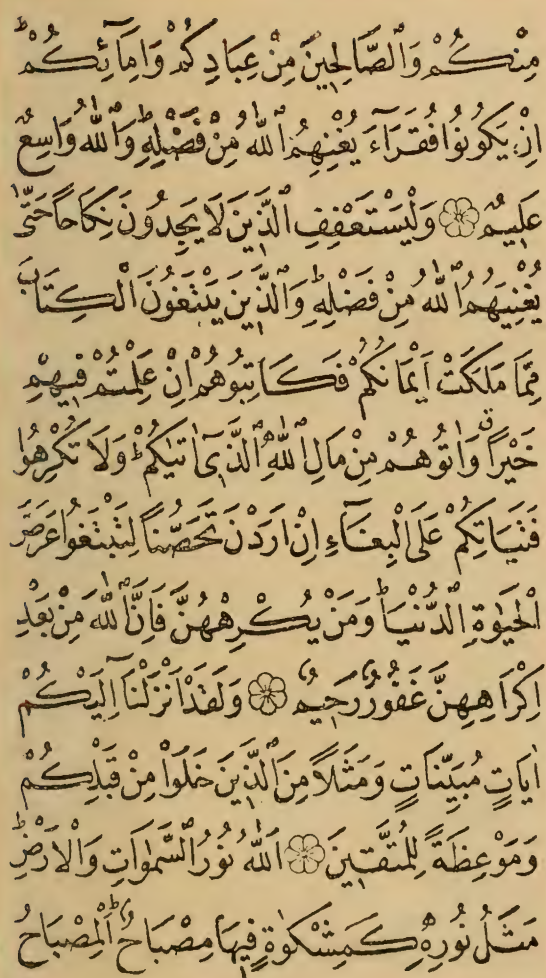 مِنْكُمْ وَالصَّالِحِينَ مِنْ عِبَادِكُمْ وَاِمَآئِكُمْ ۜ
اِنْ يَكُونُوا فُقَرَآءَ يُغْنِهِمُ اللّٰهُ مِنْ فَضْلِهِ وَاللّٰهُ وَاسِعٌ
عَلِيمٌ ۝ وَلْيَسْتَعْفِفِ الَّذِينَ لَا يَجِدُونَ نِكَاحاً حَتّٰى
يُغْنِيَهُمُ اللّٰهُ مِنْ فَضْلِهِ وَالَّذِينَ يَبْتَغُونَ الْكِتَابَ
مِمَّا مَلَكَتْ اَيْمَانُكُمْ فَكَاتِبُوهُمْ اِنْ عَلِمْتُمْ فِيهِمْ
خَيْراً وَاٰتُوهُمْ مِنْ مَالِ اللّٰهِ الَّذِىٓ اٰتٰيكُمْ وَلَا تُكْرِهُوا
فَتَيَاتِكُمْ عَلَى الْبِغَآءِ اِنْ اَرَدْنَ تَحَصُّناً لِتَبْتَغُوا عَرَضَ
الْحَيٰوةِ الدُّنْيَا وَمَنْ يُكْرِهْهُنَّ فَاِنَّ اللّٰهَ مِنْ بَعْدِ
اِكْرَاهِهِنَّ غَفُورٌ رَحِيمٌ ۝ وَلَقَدْ اَنْزَلْنَٓا اِلَيْكُمْ
اٰيَاتٍ مُبَيِّنَاتٍ وَمَثَلاً مِنَ الَّذِينَ خَلَوْا مِنْ قَبْلِكُمْ
وَمَوْعِظَةً لِلْمُتَّقِينَ ۝ اَللّٰهُ نُورُ السَّمٰوَاتِ وَالْاَرْضِ
مَثَلُ نُورِهِ كَمِشْكٰوةٍ فِيهَا مِصْبَاحٌ اَلْمِصْبَاحُ